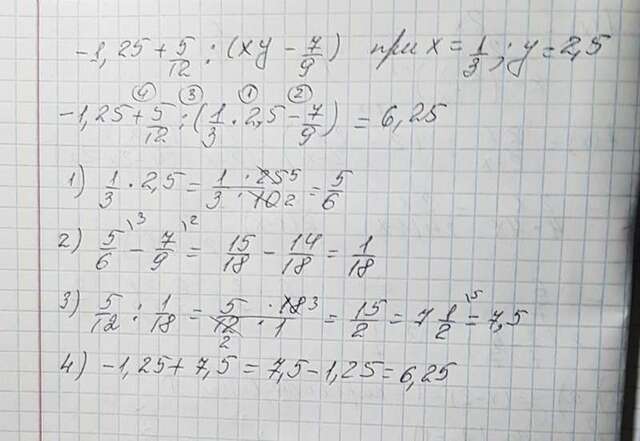 -1,25 + 5/12 : (xy - 7/9) при x = 1/3; y = 2,5
④ ③ ① ②
-1,25 + 5/12 : (1/3 · 2,5 - 7/9) = 6,25
1) 1/3 · 2,5 = 1 · 25 5 / 3 · 10 2 = 5/6
2) 5/6 \3 - 7/9 \2 = 15/18 - 14/18 = 1/18
3) 5/12 : 1/18 = 5 · 18 3 / 12 2 · 1 = 15/2 = 7 1/2 \5 = 7,5
4) -1,25 + 7,5 = 7,5 - 1,25 = 6,25